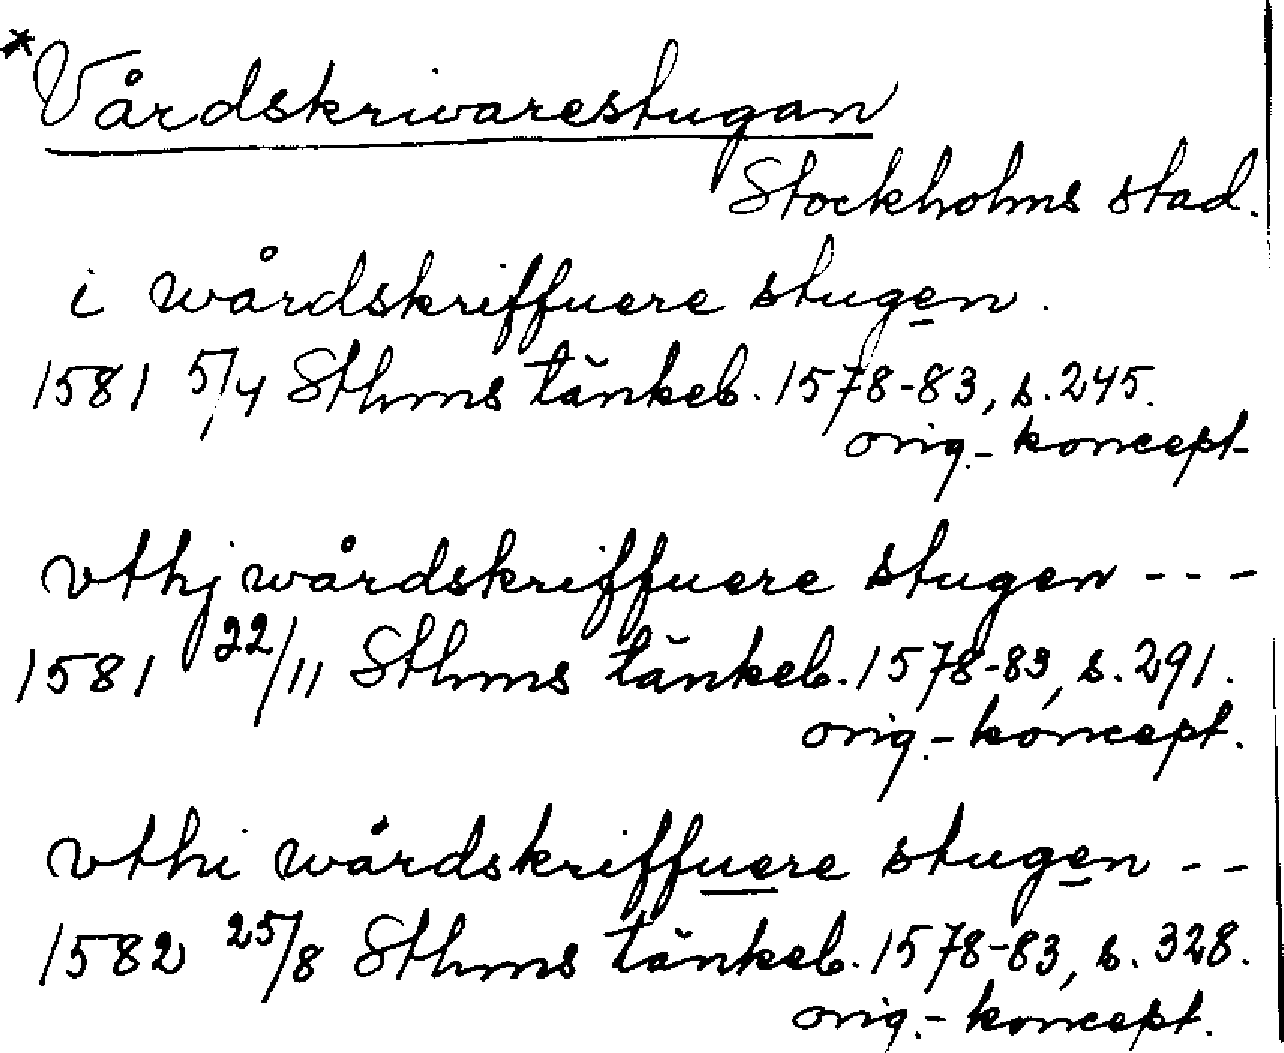 *Vårdskrivarestugan
Stockholms stad.
i wårdskriffuere stugen.
1581 5/4 Sthms tänkeb. 1578-83, s. 245.
orig.- koncept
vthj wårdskriffuere stugen - - -
1581 22/11 Sthms tänkeb. 1578-83, s. 291.
orig.- koncept.
vthi wårdskriffuere stugen - -
1582 25/8 Sthms tänkeb. 1578-83, s. 328.
orig.- koncept.